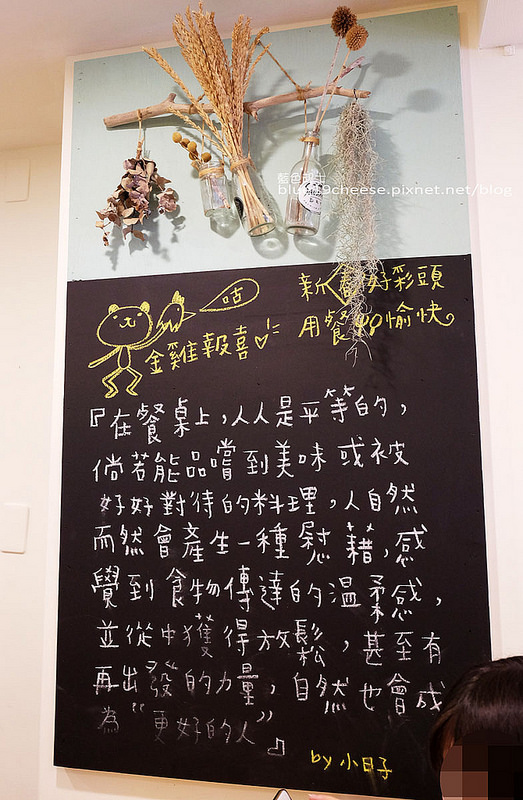 藍色起士
blue119cheese.pixnet.net/blog
新春好彩頭
用餐愉快
咕
金雞報喜
『在餐桌上，人人是平等的，
倘若能品嚐到美味或被
好好對待的料理，人自然
而然會產生一種慰藉，感
覺到食物傳達的溫柔感，
並從中獲得放鬆，甚至有
再出發的力量，自然也會成
為“更好的人”』
by 小日子